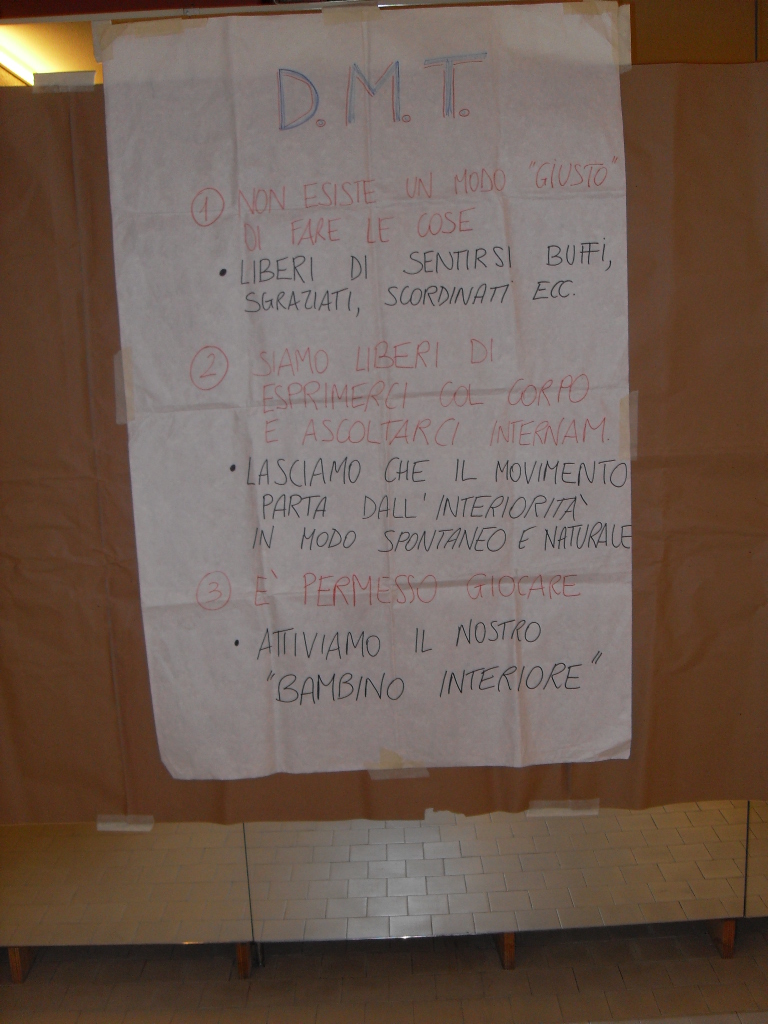 D.M.T.
1 NON ESISTE UN MODO "GIUSTO"
DI FARE LE COSE
• LIBERI DI SENTIRSI BUFFI,
SGRAZIATI, SCORDINATI ECC.
2 SIAMO LIBERI DI
ESPRIMERCI COL CORPO
E ASCOLTARCI INTERNAM.
• LASCIAMO CHE IL MOVIMENTO
PARTA DALL'INTERIORITÀ
IN MODO SPONTANEO E NATURALE
3 E' PERMESSO GIOCARE
• ATTIVIAMO IL NOSTRO
"BAMBINO INTERIORE"